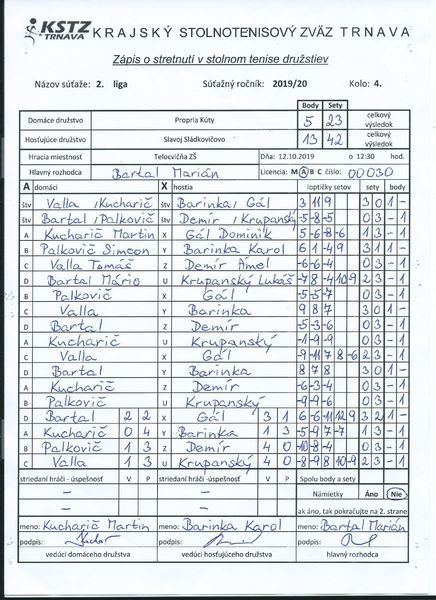 KSTZ TRNAVA KRAJSKÝ STOLNOTENISOVÝ ZVÄZ TRNAVA
Zápis o stretnutí v stolnom tenise družstiev
Názov súťaže: 2. liga Súťažný ročník: 2019/20 Kolo: 4.
Body Sety
Domáce družstvo Propria Kúty 5 23 celkový výsledok
Hosťujúce družstvo Slavoj Sládkovičovo 13 42 celkový výsledok
Hracia miestnosť Telocvičňa ZŠ Dňa: 12.10.2019 o 12:30 hod.
Hlavný rozhodca Bartal Marián Licencia: M A B C číslo: 00030
A domáci X hostia loptičky setov sety body
štv Valla, Kucharič štv Barinka, Gál 3 11 9 3 0 1 -
štv Bartal, Palkovič štv Demír, Krupanský -5 -8 -5 0 3 - 1
A Kucharič Martin X Gál Dominik -5 -6 8 -6 1 3 - 1
B Palkovič Simeon Y Barinka Karol 6 1 -4 9 3 1 1 -
C Valla Tomáš Z Demír Ámel -6 -6 -4 0 3 - 1
D Bartal Mário U Krupanský Lukáš -7 8 -4 10 -9 2 3 - 1
B Palkovič X Gál -5 -5 -7 0 3 - 1
C Valla Y Barinka 9 8 7 3 0 1 -
D Bartal Z Demír -5 -3 -6 0 3 - 1
A Kucharič U Krupanský -1 -9 -9 0 3 - 1
C Valla X Gál -9 -11 7 8 -6 2 3 - 1
D Bartal Y Barinka 8 7 8 3 0 1 -
A Kucharič Z Demír -6 -3 -4 0 3 - 1
B Palkovič U Krupanský -9 -9 -6 0 3 - 1
D Bartal 2 2 X Gál 3 1 6 -6 -11 12 9 3 2 1 -
A Kucharič 0 4 Y Barinka 1 3 -5 -9 7 -7 1 3 - 1
B Palkovič 1 3 Z Demír 4 0 -10 -8 -4 0 3 - 1
C Valla 1 3 U Krupanský 4 0 -8 -9 8 10 -9 2 3 - 1
striedaní hráči - úspešnosť V P striedaní hráči - úspešnosť V P Spolu body a sety
- - Námietky Áno Nie
- - ak áno, tak pokračujte na 2. strane
meno: Kucharič Martin meno: Barinka Karol meno: Bartal Marián
podpis: podpis: podpis:
vedúci domáceho družstva vedúci hosťujúceho družstva hlavný rozhodca